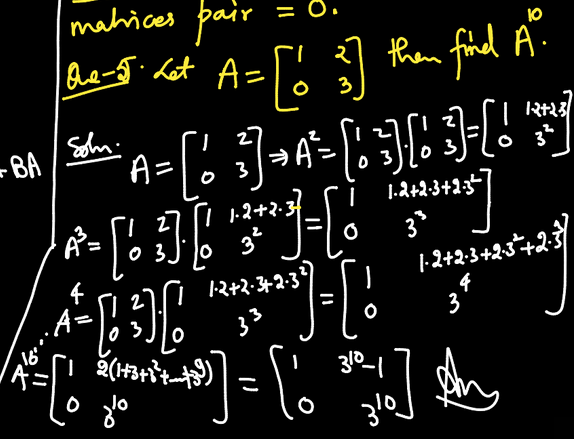 matrices pair = 0.
Que-5. Let A = [1 2; 0 3] then find A^10.
+BA
Soln. A = [1 2; 0 3] ⇒ A^2 = [1 2; 0 3]·[1 2; 0 3] = [1 1·2+2·3; 0 3^2]
A^3 = [1 2; 0 3]·[1 1·2+2·3; 0 3^2] = [1 1·2+2·3+2·3^2; 0 3^3]
A^4 = [1 2; 0 3]·[1 1·2+2·3+2·3^2; 0 3^3] = [1 1·2+2·3+2·3^2+2·3^3; 0 3^4]
A^10 = [1 2(1+3+3^2+...+3^9); 0 3^10] = [1 3^10-1; 0 3^10] Ans